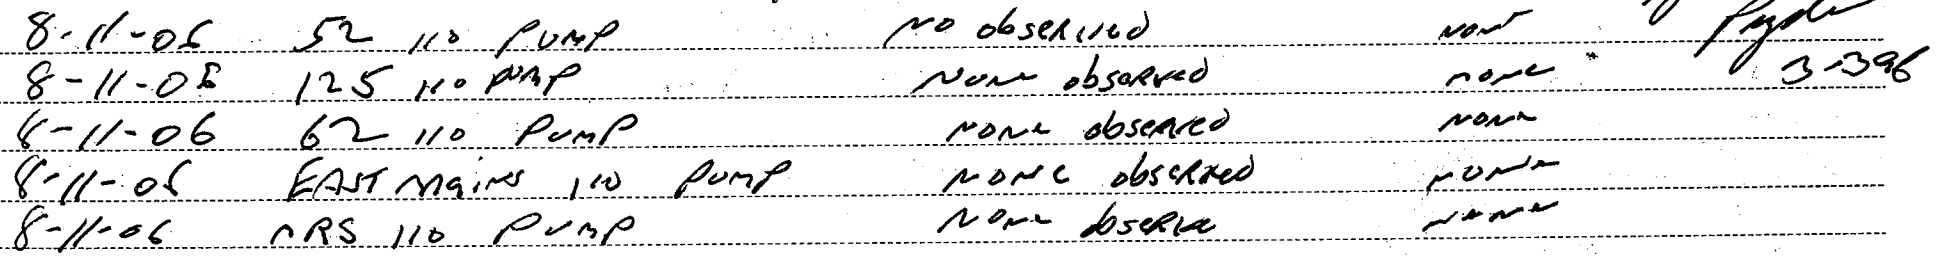 8-11-06 52 110 PUMP NO observed none
8-11-06 125 110 PUMP NONE observed none 3-396
8-11-06 62 110 PUMP NONE observed NONE
8-11-06 EAST mains 110 PUMP NONE observed none
8-11-06 110 PUMP NONE observe none